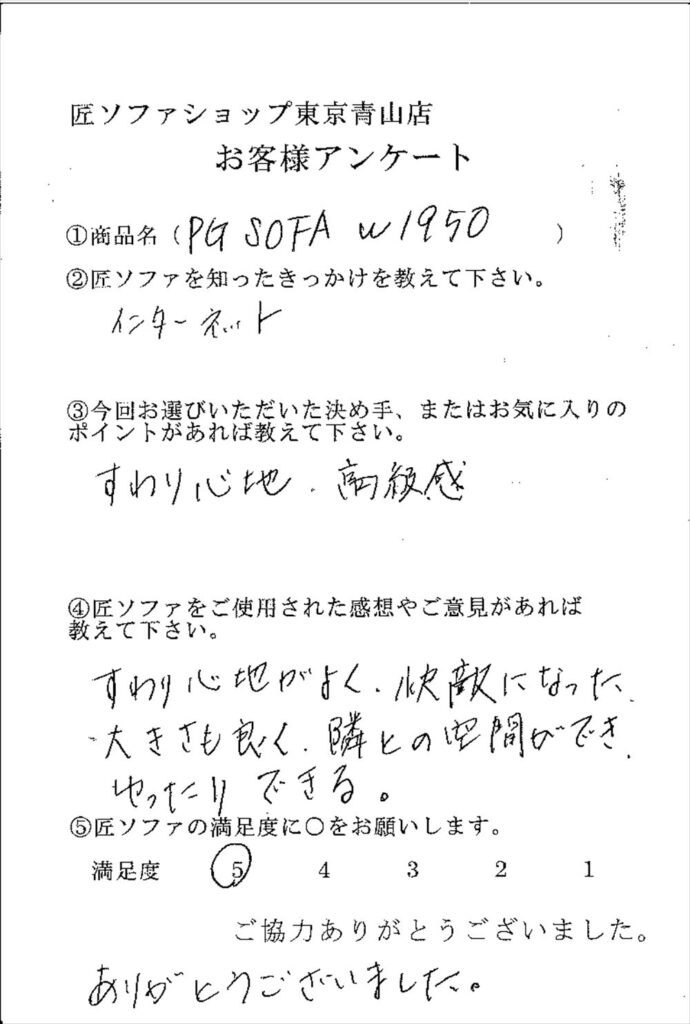 匠ソファショップ東京青山店
お客様アンケート
①商品名（PG SOFA W1950）
②匠ソファを知ったきっかけを教えて下さい。
インターネット
③今回お選びいただいた決め手、またはお気に入りの
ポイントがあれば教えて下さい。
すわり心地、高級感
④匠ソファをご使用された感想やご意見があれば
教えて下さい。
すわり心地がよく、快敵になった、
大きさも良く、隣との空間ができ、
ゆったりできる。
⑤匠ソファの満足度に○をお願いします。
満足度 5 4 3 2 1
ご協力ありがとうございました。
ありがとうございました。